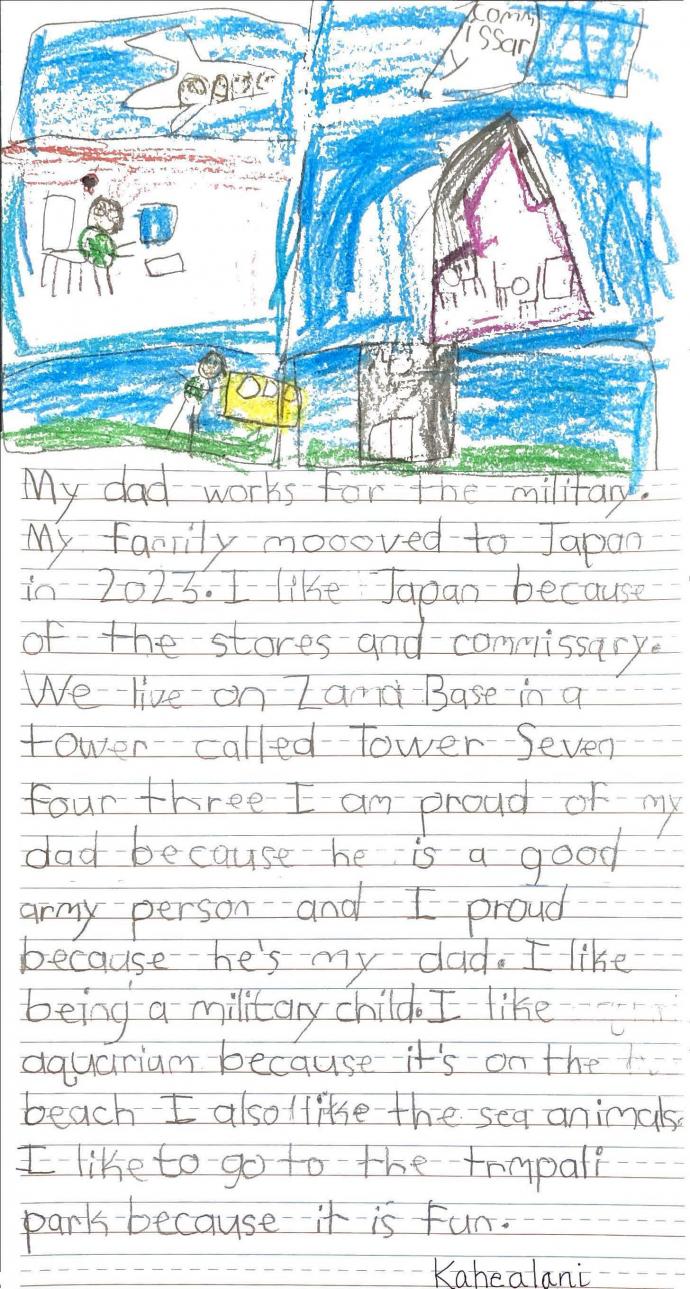 comm
issar
y
My dad works for the military.
My Family moooved to Japan
in 2023. I like Japan because
of the stores and commissary.
We live on Zama Base in a
tower called Tower Seven
four three I am proud of my
dad because he is a good
army person and I proud
because he's my dad. I like
being a military child. I like
aquarium because it's on the
beach I also like the sea animals.
I like to go to the
park because it is fun.
Kahealani